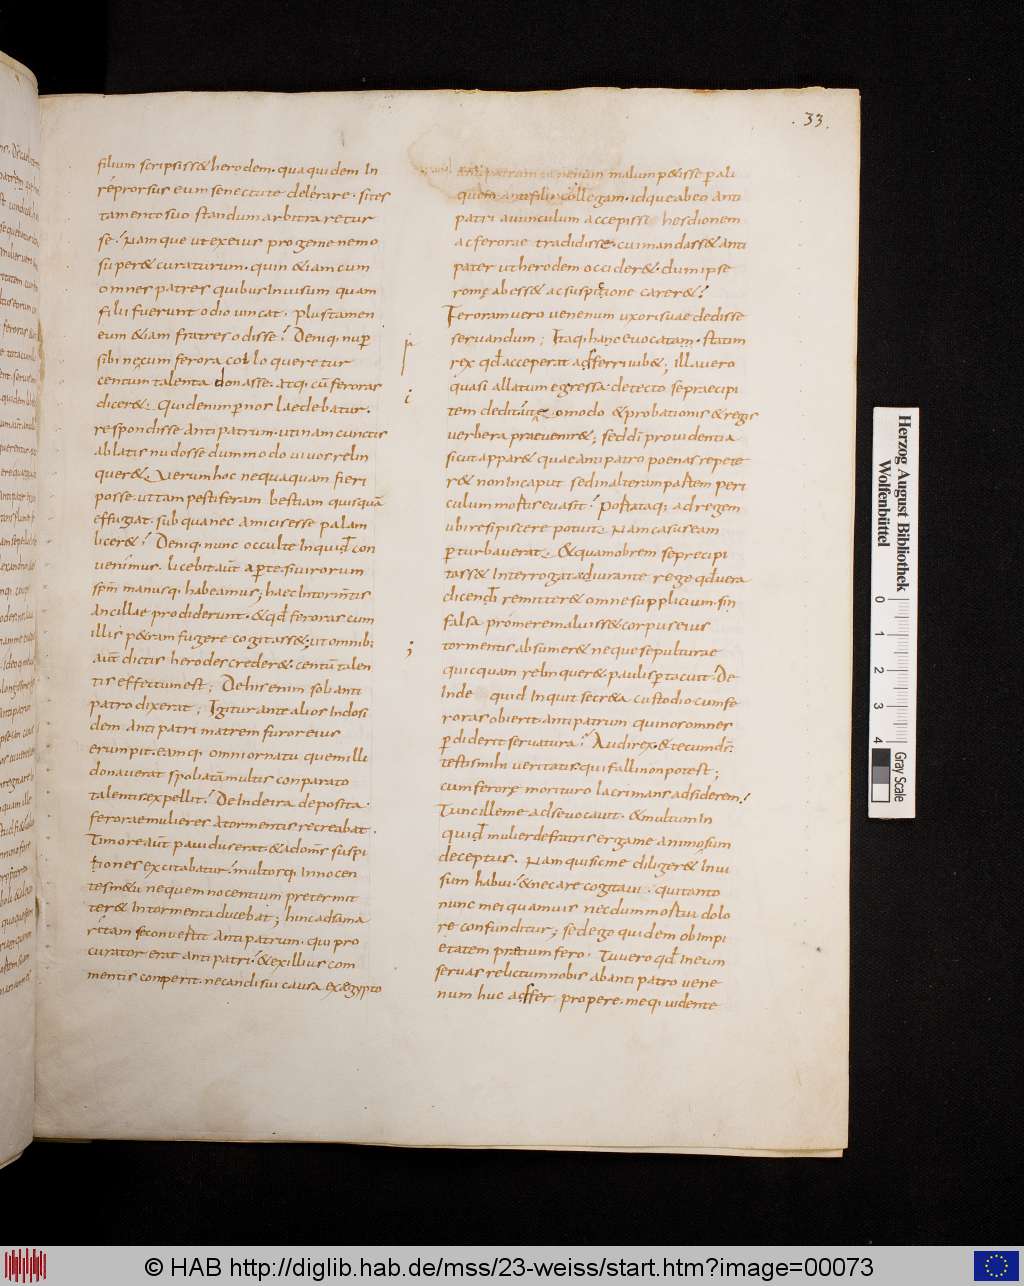 . 33.
filium scripsiss& herodem. qua quidem In
reprorsus eum senectute delerare. si tes
tamento suo standum arbitraretur
se. Namque ut ex eius progenie nemo
super& curaturum. quin &iam cum
omnes patres quibus Inuisum quam
filii fuerunt odio uincat. plus tamen
eum &iam fratres odisse. Deniq; nup
sibi ne cum ferora collo queretur
centum talenta donasse. atq; cū feroras
dicer&. Quid enim p nos laedebatur.
respondisse anti patrum. utinam cunctis
ablatis nudos se dum modo uiuos relin
quer&. Verum hoc nequaquam fieri
posse. ut tam pestiferam bestiam quisquā
effugiat. sub qua nec amicis esse palam
licer&. Deniq; nunc occulte Inquid con
uenimus. licebit aūt aperte. si uirorum
sp̄m manusq; habeamus; haec Intorm̄tis
ancillae prodiderunt. & qd feroras cum
illis p&ram fugere cogitass&. ut omnib;
aūt dictis herodes creder&. centū talen
tis effectum est; De his enim soli anti
patro dixerat; Igitur ante alios Indosi
dem anti patri matrem furor eius
erumpit. eamq; omni ornatu quem illi
donauerat spoliatā multis conparato
talentis expellit. Deinde ira deposita.
ferorae mulieres a tormentis recreabat.
Timore aūt pauidus erat. & ad om̄s suspi
tiones excitabatur. multosq; Innocen
tes m&u ne quem nocentium preter mit
ter& In tormenta ducebat; hinc ad sama
ritam se conuertit anti patrum. qui pro
curator erat anti patri. & ex illius com
mentis conperit. necandi sui causa ex aegypto
anti patrum uenenum malum p&isse p ali
quem anti fili collegam. id que ab eo anti
patri auunculum accepisse hesdionem
ac ferorae tradidisse. cui mandass& anti
pater ut herodem occider&. dum ipse
romę abess& ac suspitione carer&.
Feroram uero uenenum uxori suae dedisse
seruandum; Itaq; hanc euocatam. statim
rex qd acceperat afferri iub&; illa uero
quasi allatum egressa. detecto se praecipi
tem dedit. & probationis & regis
uerbera praeuenir&; sed dī prouidentia
sicut appar& quae anti patro poenas repete
r& non In caput sed In alteram partem peri
culum mortis euasit. Postataq; ad regem
ubi resipiscere potuit. Nam casus eam
p turbauerat. & quamobrem se precipi
tass& Interrogat. adiurante rege qd uera
dicendi remitter& omne supplicium. sin
falsa promere maluiss& corpus eius
tormentis absumer& neque sepulturae
quicquam relinquer& paulisp tacuit. De
Inde quid Inquit secr&a custodio cum fe
roras obierit. antipatrum qui nos omnes
p diderit seruatura. Audi rex. & tecum d̄s
testis mihi ueritatis. qui falli non potest;
cum ferorę morituro lacrimans adsiderem.
Tunc ille me ad se uocauit. & multum In
quid mulier de fratris erga me animo sum
deceptus. Nam qui sic me diliger& Inui
sum habui. & necare cogitaui. qui tanto
nunc mei quamuis necdum mortui dolo
re confunditur; sed ego quidem ob Impi
etatem praetium fero. Tu uero qd In eum
seruas relictum nobis ab anti patro uene
num huc affer propere. meq; uidente
Herzog August Bibliothek
Wolfenbüttel
0 1 2 3 4 Gray Scale
© HAB http://diglib.hab.de/mss/23-weiss/start.htm?image=00073